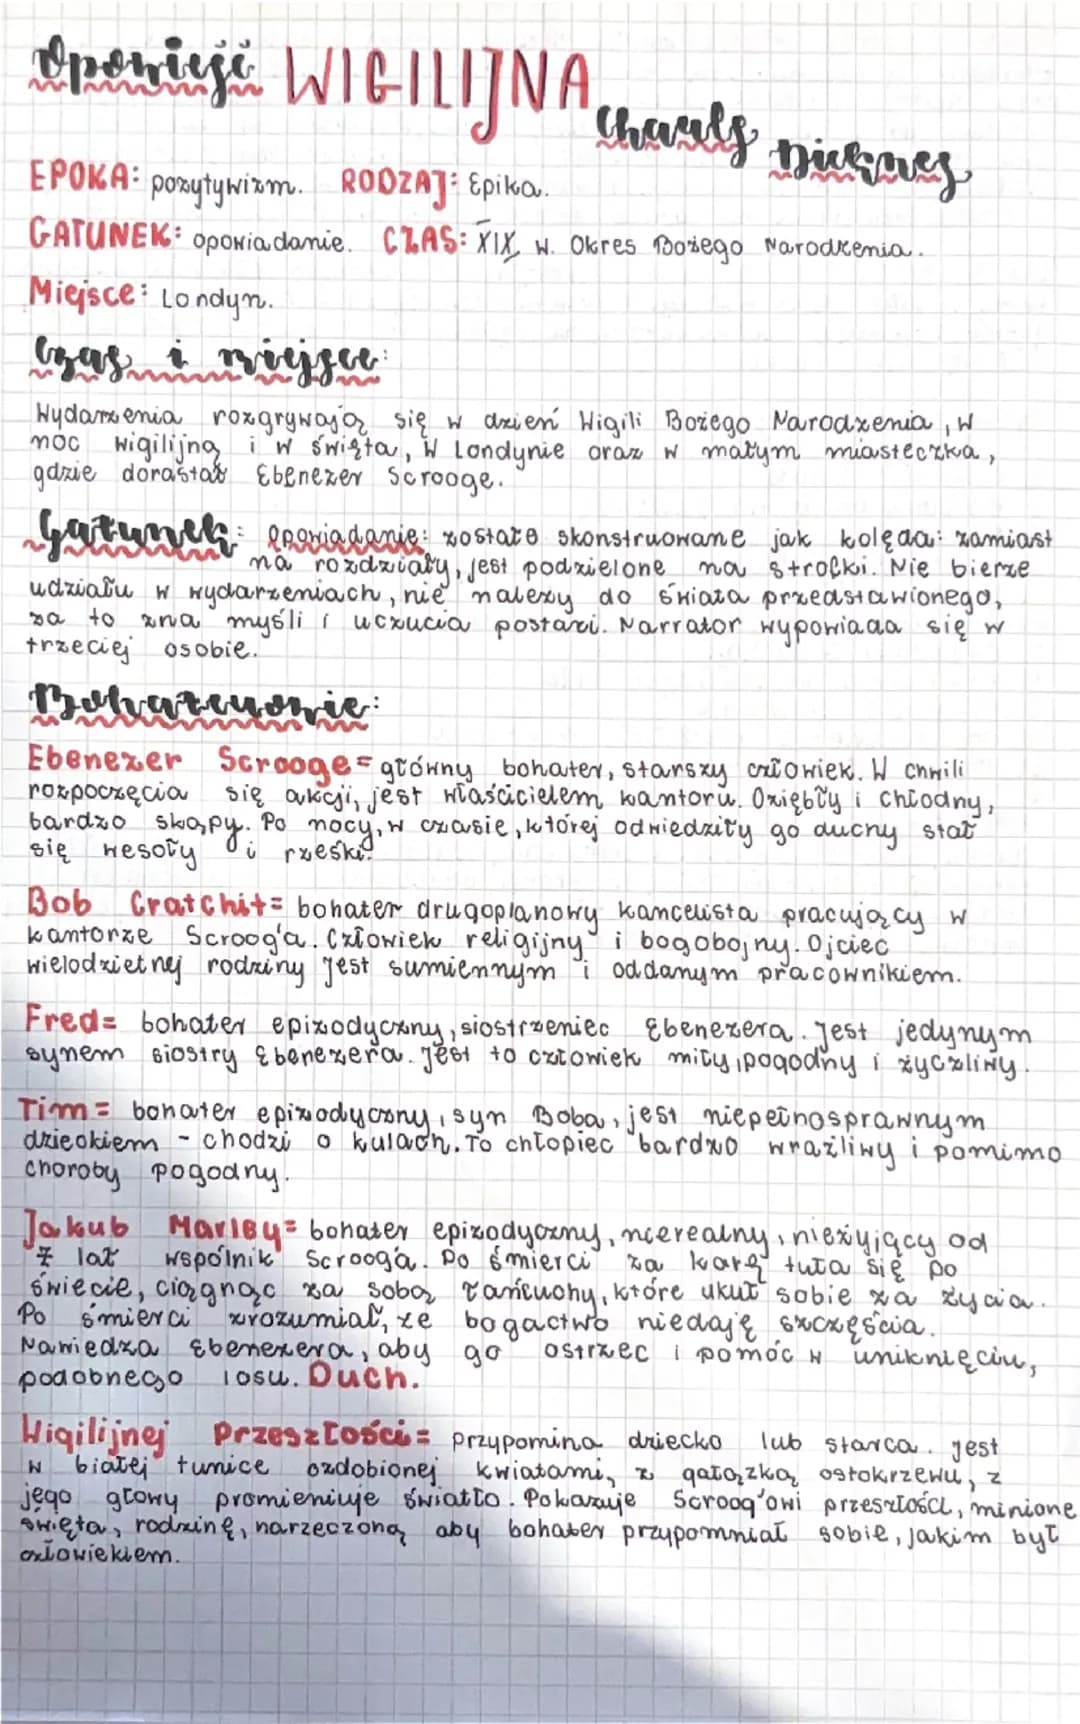 Opowieść WIGILIJNA
Charls Dicknes
EPOKA: pozytywizm. RODZAJ: Epika.
GATUNEK: opowiadanie. CZAS: XIX w. Okres Bożego Narodzenia.
Miejsce: Londyn.
Czas i miejsce:
Wydarzenia rozgrywają się w dzień Wigili Bożego Narodzenia, w
noc wigilijną i w święta, w Londynie oraz w małym miasteczka,
gdzie dorastał Ebenezer Scrooge.
Gatunek: Opowiadanie: zostało skonstruowane jak kolęda: zamiast
na rozdziały, jest podzielone na strofki. Nie bierze
udziału w wydarzeniach, nie należy do świata przedstawionego,
za to zna myśli i uczucia postaci. Narrator wypowiada się w
trzeciej osobie.
Bohaterowie:
Ebenezer Scrooge= główny bohater, starszy człowiek. W chwili
rozpoczęcia się akcji, jest właścicielem kantoru. Oziębły i chłodny,
bardzo skąpy. Po nocy, w czasie, której odwiedziły go duchy stał
się wesoły i rześki.
Bob Cratchit= bohater drugoplanowy kancelista pracujący w
kantorze Scroog'a. Człowiek religijny i bogobojny. Ojciec
wielodzietnej rodziny jest sumiennym i oddanym pracownikiem.
Fred= bohater epizodyczny, siostrzeniec Ebenezera. Jest jedynym
synem siostry Ebenezera. Jest to człowiek miły, pogodny i życzliwy.
Tim= bohater epizodyczny, syn Boba, jest niepełnosprawnym
dzieckiem - chodzi o kulach. To chłopiec bardzo wrażliwy i pomimo
choroby pogodny.
Jakub Marley= bohater epizodyczny, nierealny, nieżyjący od
7 lat wspólnik Scroog'a. Po śmierci za karę tuła się po
świecie, ciągnąc za sobą łańcuchy, które ukuł sobie za życia.
Po śmierci zrozumiał, że bogactwo niedaję szczęścia.
Nawiedza Ebenezera, aby go ostrzec i pomóc w uniknięciu,
podobnego losu. Duch.
Wigilijnej Przeszłości= przypomina dziecko lub starca. jest
w białej tunice ozdobionej kwiatami, z gałązką ostokrzewu, z
jego głowy promieniuje światło. Pokazuje Scroog'owi przeszłości, minione
święta, rodzinę, narzeczoną aby bohater przypomniał sobie, jakim był
człowiekiem.